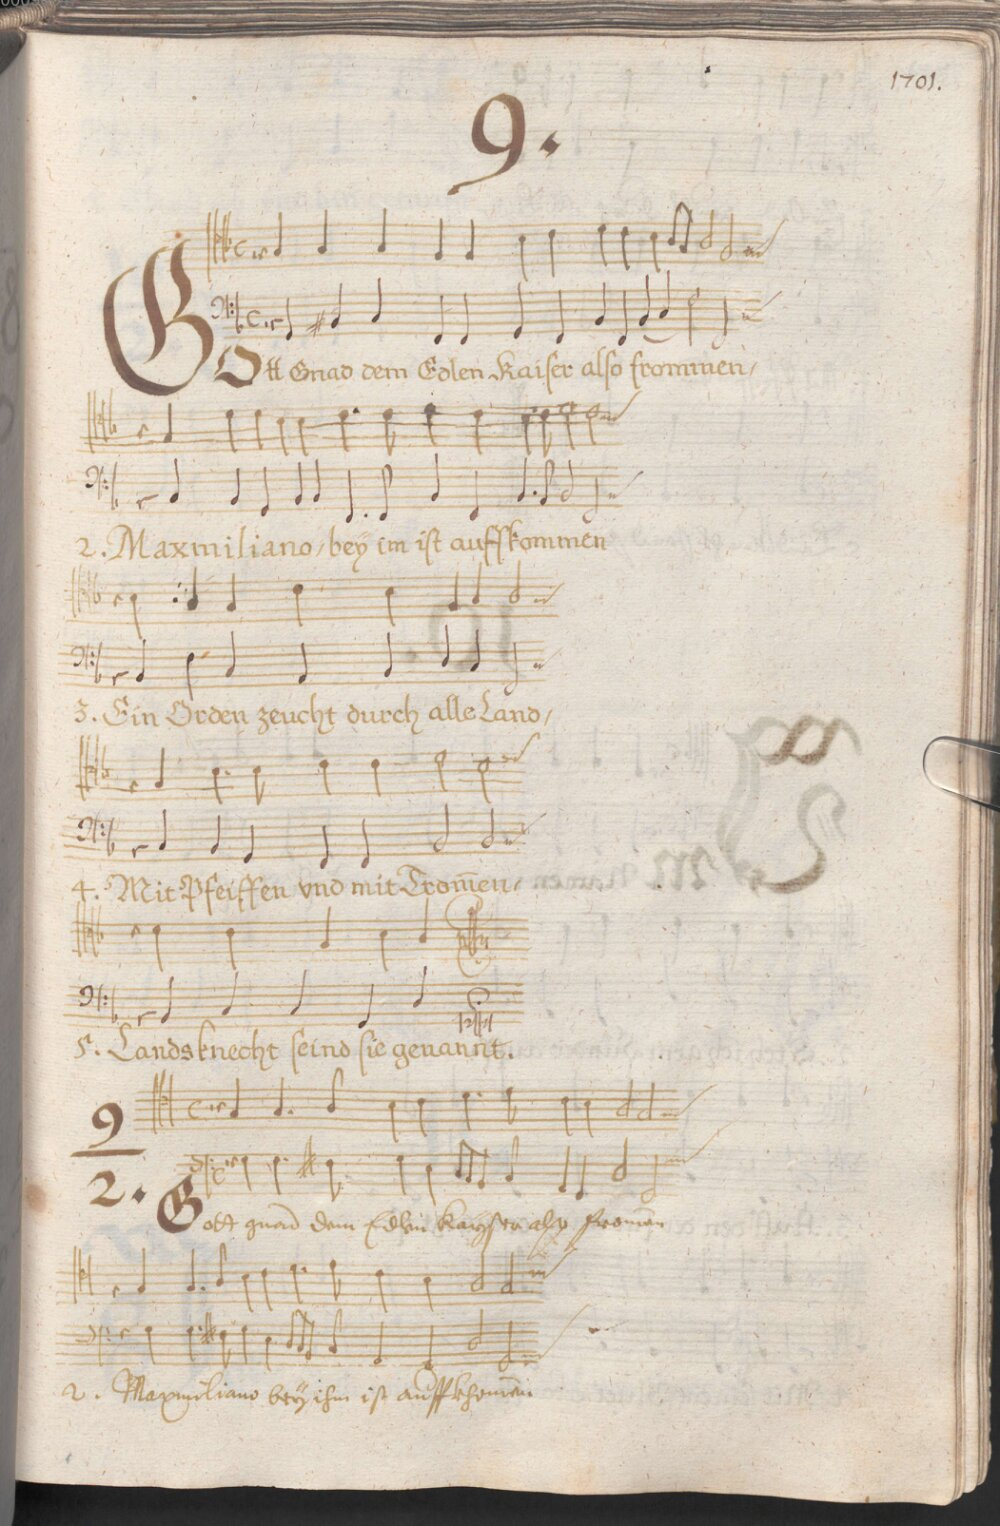 1701.
9.
GOtt Gnad dem Edlen Kaiser also frommen/
2. Maxmiliano/ bey im ist auffkommen
3. Ein Orden zeucht durch alle Land/
4. Mit Pfeiffen vnd mit Trom̅en/
5. Landsknecht seind sie genannt.
9
2. Gott gnad dem Edlen Kayser also from̅en
2. Maxmiliano bey ihm ist auffkhom̅en